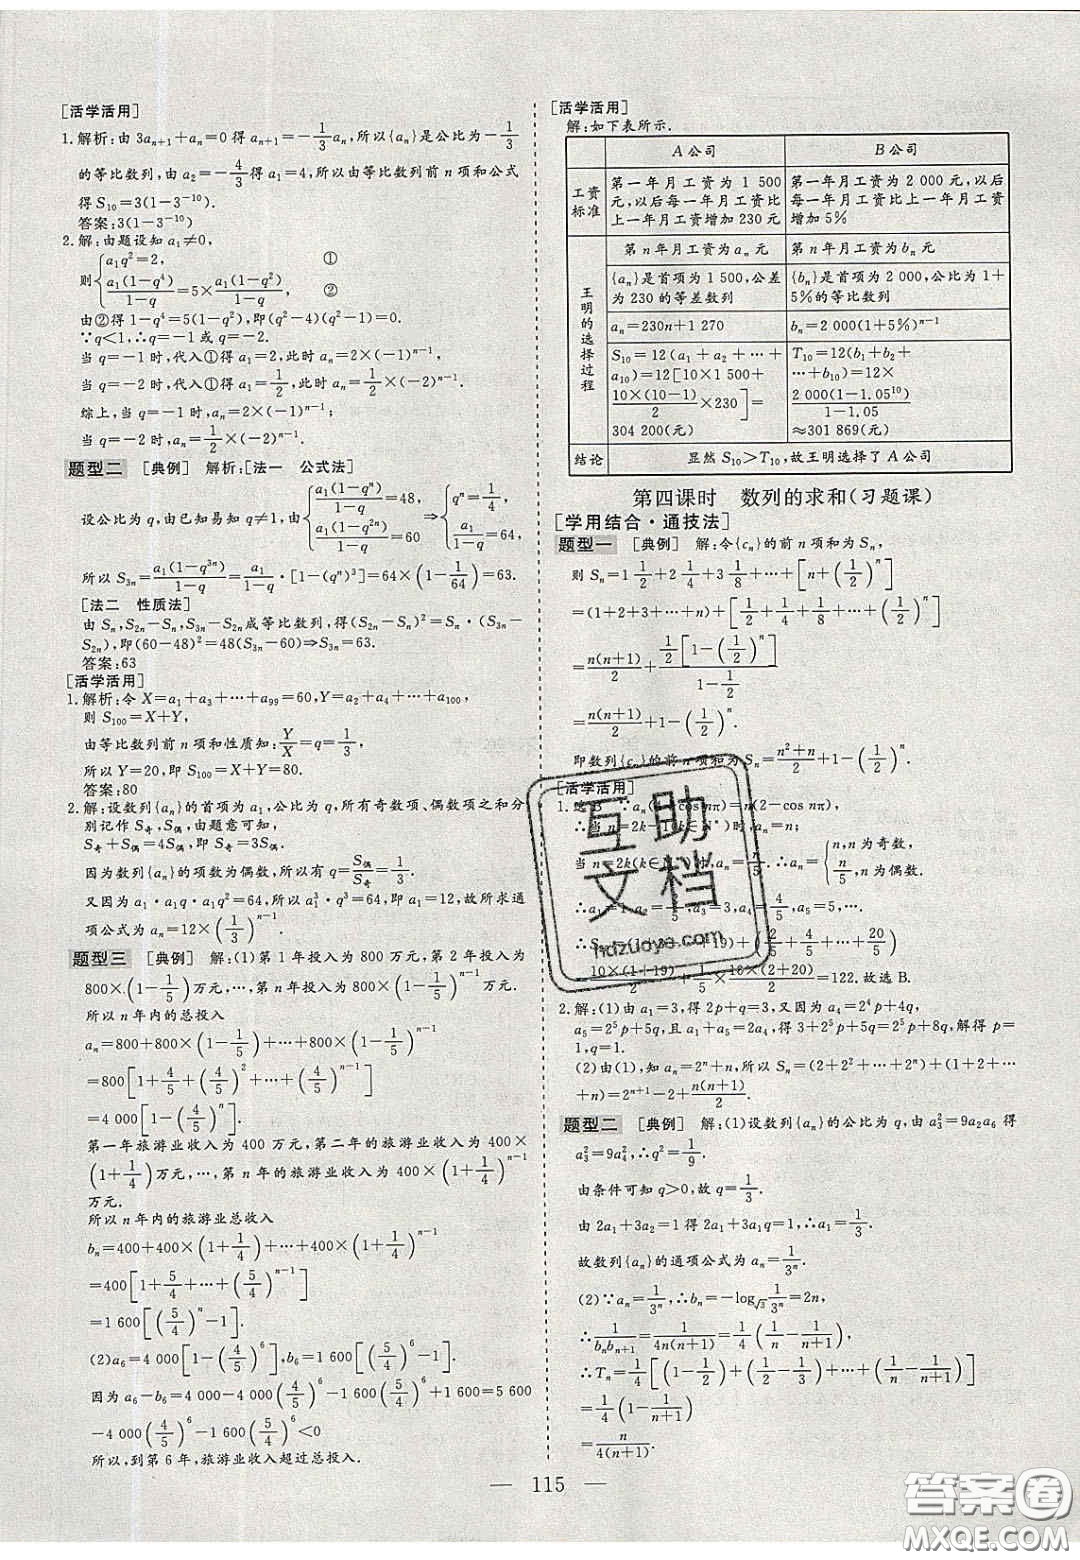 [活学活用]
1.解析:由 3aₙ₊₁+aₙ=0 得 aₙ₊₁=-1/3 aₙ,所以{aₙ}是公比为-1/3
的等比数列,由 a₂=-4/3得 a₁=4,所以由等比数列前 n 项和公式
得 S₁₀=3(1-3⁻¹⁰).
答案:3(1-3⁻¹⁰)
2.解:由题设知 a₁≠0,
则{a₁q²=2, ①
a₁(1-q⁴)/(1-q)=5×a₁(1-q²)/(1-q), ②
由②得 1-q⁴=5(1-q²),即(q²-4)(q²-1)=0.
∵q<1,∴q=-1 或 q=-2.
当 q=-1 时,代入①得 a₁=2,此时 aₙ=2×(-1)ⁿ⁻¹,
当 q=-2 时,代入①得 a₁=1/2,此时 aₙ=1/2×(-2)ⁿ⁻¹,
综上,当 q=-1 时,aₙ=2×(-1)ⁿ⁻¹;
当 q=-2 时,aₙ=1/2×(-2)ⁿ⁻¹.
题型二 [典例] 解析:[法一 公式法]
设公比为 q,由已知易知 q≠1,由{a₁(1-qⁿ)/(1-q)=48, a₁(1-q²ⁿ)/(1-q)=60 ⇒{qⁿ=1/4, a₁/(1-q)=64,
所以 S₃ₙ=a₁(1-q³ⁿ)/(1-q)=a₁/(1-q)·[1-(qⁿ)³]=64×(1-1/64)=63.
[法二 性质法]
由 Sₙ,S₂ₙ-Sₙ,S₃ₙ-S₂ₙ成等比数列,得(S₂ₙ-Sₙ)²=Sₙ·(S₃ₙ-
S₂ₙ),即(60-48)²=48(S₃ₙ-60)⇒S₃ₙ=63.
答案:63
[活学活用]
1.解析:令 X=a₁+a₃+…+a₉₉=60,Y=a₂+a₄+…+a₁₀₀,
则 S₁₀₀=X+Y,
由等比数列前 n 项和性质知:Y/X=q=1/3,
所以 Y=20,即 S₁₀₀=X+Y=80.
答案:80
2.解:设数列{aₙ}的首项为 a₁,公比为 q,所有奇数项、偶数项之和分
别记作 S奇,S偶,由题意可知,
S奇+S偶=4S偶,即 S奇=3S偶.
因为数列{aₙ}的项数为偶数,所以有 q=S偶/S奇=1/3.
又因为 a₁·a₁q·a₁q²=64,所以 a₁³·q³=64,即 a₁=12,故所求通
项公式为 aₙ=12×(1/3)ⁿ⁻¹.
题型三 [典例] 解:(1)第 1 年投入为 800 万元,第 2 年投入为
800×(1-1/5)万元,…,第 n 年投入为 800×(1-1/5)ⁿ⁻¹万元.
所以 n 年内的总投入
aₙ=800+800×(1-1/5)+…+800×(1-1/5)ⁿ⁻¹
=800[1+4/5+(4/5)²+…+(4/5)ⁿ⁻¹]
=4 000[1-(4/5)ⁿ].
第一年旅游业收入为 400 万元,第二年的旅游业收入为 400×
(1+1/4)万元,…,第 n 年的旅游业收入为 400×(1+1/4)ⁿ⁻¹
万元.
所以 n 年内的旅游业总收入
bₙ=400+400×(1+1/4)+…+400×(1+1/4)ⁿ⁻¹
=400[1+5/4+…+(5/4)ⁿ⁻¹]
=1 600[(5/4)ⁿ-1].
(2)a₆=4 000[1-(4/5)⁶],b₆=1 600[(5/4)⁶-1].
因为 a₆-b₆=4 000-4 000(4/5)⁶-1 600(5/4)⁶+1 600=5 600
-4 000(4/5)⁶-1 600(5/4)⁶<0
所以,到第 6 年,旅游业收入超过总投入.
[活学活用]
解:如下表所示.
A 公司 B 公司
工资标准 第一年月工资为 1 500元,以后每一年月工资比上一年月工资增加 230 元 第一年月工资为 2 000 元,以后每一年月工资比上一年月工资增加 5%
王明的选择过程 第 n 年月工资为 aₙ 元 第 n 年月工资为 bₙ 元
{aₙ}是首项为 1 500,公差为 230 的等差数列 {bₙ}是首项为 2 000,公比为 1+5%的等比数列
aₙ=230n+1 270 bₙ=2 000(1+5%)ⁿ⁻¹
S₁₀=12(a₁+a₂+…+a₁₀)=12[10×1 500+10×(10-1)/2×230]=304 200(元) T₁₀=12(b₁+b₂+…+b₁₀)=12×2 000(1-1.05¹⁰)/(1-1.05)≈301 869(元)
结论 显然 S₁₀>T₁₀,故王明选择了 A 公司
第四课时 数列的求和(习题课)
[学用结合·通技法]
题型一 [典例] 解:令{cₙ}的前 n 项和为 Sₙ,
则 Sₙ=1 1/2+2 1/4+3 1/8+…+[n+(1/2)ⁿ]
=(1+2+3+…+n)+[1/2+1/4+1/8+…+(1/2)ⁿ]
=n(n+1)/2+1/2[1-(1/2)ⁿ]/(1-1/2)
=n(n+1)/2+1-(1/2)ⁿ.
即数列{cₙ}的前 n 项和为 Sₙ=(n²+n)/2+1-(1/2)ⁿ.
[活学活用]
1.选B ∵aₙ(2+cos nπ)=n(2-cos nπ),
∴当 n=2k-1(k∈N*)时,aₙ=n;
当 n=2k(k∈N*)时,aₙ=n/5. ∴aₙ={n,n 为奇数, n/5,n 为偶数.
∴a₁=1,a₂=2/5,a₃=3,a₄=4/5,a₅=5,…
+19)+(2/5+4/5+…+20/5)
10×(1+19)/2+1/5×10×(2+20)/2=122.故选 B.
2.解:(1)由 a₁=3,得 2p+q=3,又因为 a₄=2⁴p+4q,
a₅=2⁵p+5q,且 a₁+a₅=2a₄,得 3+2⁵p+5q=2⁵p+8q,解得 p=
1,q=1.
(2)由(1),知 aₙ=2ⁿ+n,所以 Sₙ=(2+2²+…+2ⁿ)+(1+2+…
+n)=2ⁿ⁺¹-2+n(n+1)/2.
题型二 [典例] 解:(1)设数列{aₙ}的公比为 q,由 a₃²=9a₂a₆ 得
a₃²=9a₄²,∴q²=1/9.
由条件可知 q>0,故 q=1/3.
由 2a₁+3a₂=1 得 2a₁+3a₁q=1,∴a₁=1/3.
故数列{aₙ}的通项公式为 aₙ=1/3ⁿ.
(2)∵aₙ=1/3ⁿ,∴bₙ=-log√3 1/3ⁿ=2n,
∴1/(bₙbₙ₊₁)=1/(4n(n+1))=1/4(1/n-1/(n+1)),
∴Tₙ=1/4[(1-1/2)+(1/2-1/3)+…+(1/n-1/(n+1))]
=1/4(1-1/(n+1))
=n/(4(n+1)).
— 115 —
互助文档
hdzuoye.com
答案圈
MXQE.COM